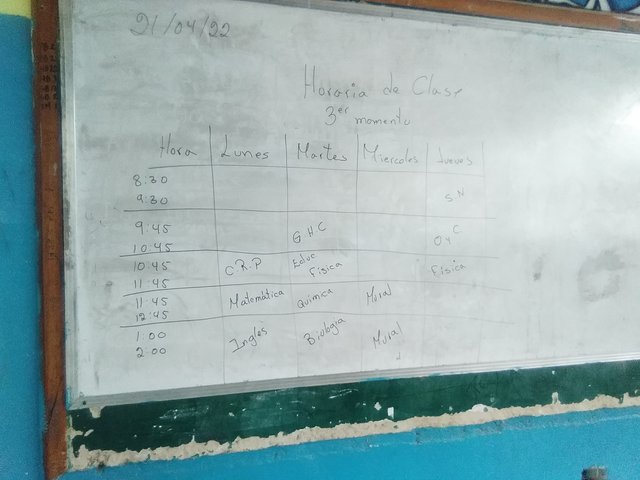 21/04/22
Horaria de Clase
3er momento
Hora Lunes Martes Miercoles Jueves
8:30
9:30 SN
9:45
10:45 GHC OyC
10:45 CRP Educ
11:45 Fisica Fisica
11:45 Matemática Quimica Mural
12:45
1:00 Ingles Biologia Mural
2:00